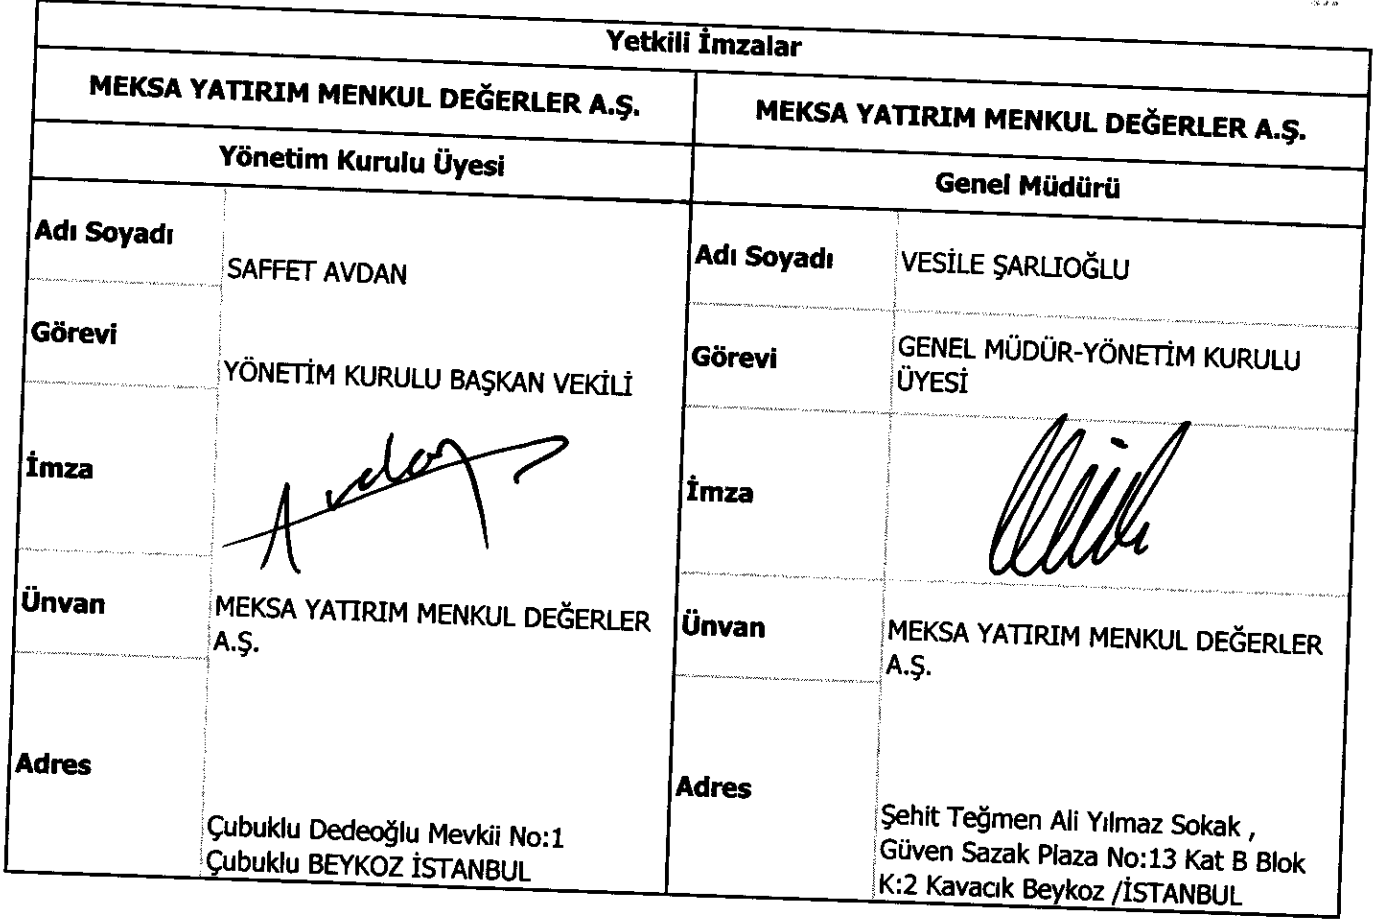 Yetkili İmzalar
MEKSA YATIRIM MENKUL DEĞERLER A.Ş.
MEKSA YATIRIM MENKUL DEĞERLER A.Ş.
Yönetim Kurulu Üyesi
Genel Müdürü
Adı Soyadı
SAFFET AVDAN
Adı Soyadı
VESİLE ŞARLIOĞLU
Görevi
YÖNETİM KURULU BAŞKAN VEKİLİ
Görevi
GENEL MÜDÜR-YÖNETİM KURULU
ÜYESİ
İmza
İmza
Ünvan
MEKSA YATIRIM MENKUL DEĞERLER
A.Ş.
Ünvan
MEKSA YATIRIM MENKUL DEĞERLER
A.Ş.
Adres
Çubuklu Dedeoğlu Mevkii No:1
Çubuklu BEYKOZ İSTANBUL
Adres
Şehit Teğmen Ali Yılmaz Sokak ,
Güven Sazak Plaza No:13 Kat B Blok
K:2 Kavacık Beykoz /İSTANBUL